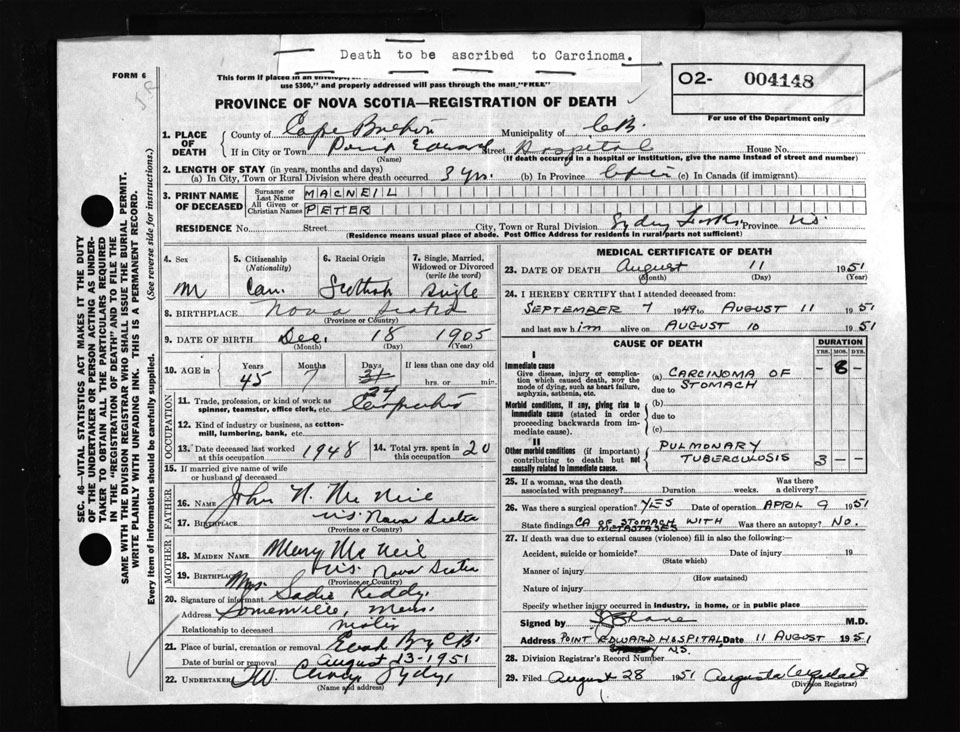 Death to be ascribed to Carcinoma.
FORM 6
This form if placed in an envelope,
use $300," and properly addressed will pass through the mail "FREE"
PROVINCE OF NOVA SCOTIA—REGISTRATION OF DEATH
O2- 004148
For use of the Department only
1. PLACE OF DEATH County of Cape Breton Municipality of C.B.
If in City or Town Point Edward Street Hospital House No.
(Name) (If death occurred in a hospital or institution, give the name instead of street and number)
2. LENGTH OF STAY (in years, months and days)
(a) In City, Town or Rural Division where death occurred 3 yrs. (b) In Province (c) In Canada (if immigrant)
3. PRINT NAME OF DECEASED Surname or Last Name MACNEIL
All Given or Christian Names PETER
RESIDENCE No. Street City, Town or Rural Division Sydney Province N.S.
(Residence means usual place of abode. Post Office Address for residents in rural parts not sufficient)
4. Sex M
5. Citizenship (Nationality) Can.
6. Racial Origin Scottish
7. Single, Married, Widowed or Divorced (write the word) Single
8. BIRTHPLACE Nova Scotia
(Province or Country)
9. DATE OF BIRTH Dec. 18 1905
(Month) (Day) (Year)
10. AGE in Years 45 Months 7 Days 24 If less than one day old hrs. or min.
OCCUPATION
11. Trade, profession, or kind of work as spinner, teamster, office clerk, etc. Carpenter
12. Kind of industry or business, as cotton-mill, lumbering, bank, etc.
13. Date deceased last worked at this occupation 1948
14. Total yrs. spent in this occupation 20
15. If married give name of wife or husband of deceased
FATHER
16. NAME John N. McNeil
17. BIRTHPLACE N.S. Nova Scotia
(Province or Country)
MOTHER
18. MAIDEN NAME Mary McNeil
19. BIRTHPLACE N.S. Nova Scotia
(Province or Country)
20. Signature of informant Mrs. Sadie Reddy
Address Somerville, Mass.
Relationship to deceased
21. Place of burial, cremation or removal C.B.
Date of burial or removal August 23-1951
22. UNDERTAKER T.W. Curry, Sydney
(Name and address)
MEDICAL CERTIFICATE OF DEATH
23. DATE OF DEATH August 11 1951
(Month) (Day) (Year)
24. I HEREBY CERTIFY that I attended deceased from:
SEPTEMBER 7 1949 TO AUGUST 11 1951
and last saw him alive on AUGUST 10 1951
CAUSE OF DEATH
DURATION
YRS. MOS. DYS.
I
Immediate cause
Give disease, injury or complication which caused death, NOT the mode of dying, such as heart failure, asphyxia, asthenia, etc.
(a) CARCINOMA OF STOMACH - 6 -
due to
Morbid conditions, if any, giving rise to immediate cause (stated in order proceeding backwards from immediate cause).
(b)
due to
(c)
II
Other morbid conditions (if important) contributing to death but not causally related to immediate cause.
PULMONARY TUBERCULOSIS 3 - -
25. If a woman, was the death associated with pregnancy? Duration weeks. Was there a delivery?
26. Was there a surgical operation? YES Date of operation APRIL 9 1951
State findings CA OF STOMACH WITH METASTASES Was there an autopsy? NO.
27. If death was due to external causes (violence) fill in also the following:—
Accident, suicide or homicide? Date of injury 19
(State which)
Manner of injury
(How sustained)
Nature of injury
Specify whether injury occurred in industry, in home, or in public place
Signed by M.D.
Address POINT EDWARD HOSPITAL, Date 11 AUGUST 1951
N.S.
28. Division Registrar's Record Number
29. Filed August 28 1951 Augusta
(Division Registrar)
SEC. 46—VITAL STATISTICS ACT MAKES IT THE DUTY
OF THE UNDERTAKER OR PERSON ACTING AS UNDER-
TAKER TO OBTAIN ALL THE PARTICULARS REQUIRED
IN THE "REGISTRATION OF DEATH" AND TO FILE THE
SAME WITH THE DIVISION REGISTRAR WHO SHALL ISSUE THE BURIAL PERMIT.
WRITE PLAINLY WITH UNFADING INK. THIS IS A PERMANENT RECORD.
Every item of information should be carefully supplied. (See reverse side for instructions.)